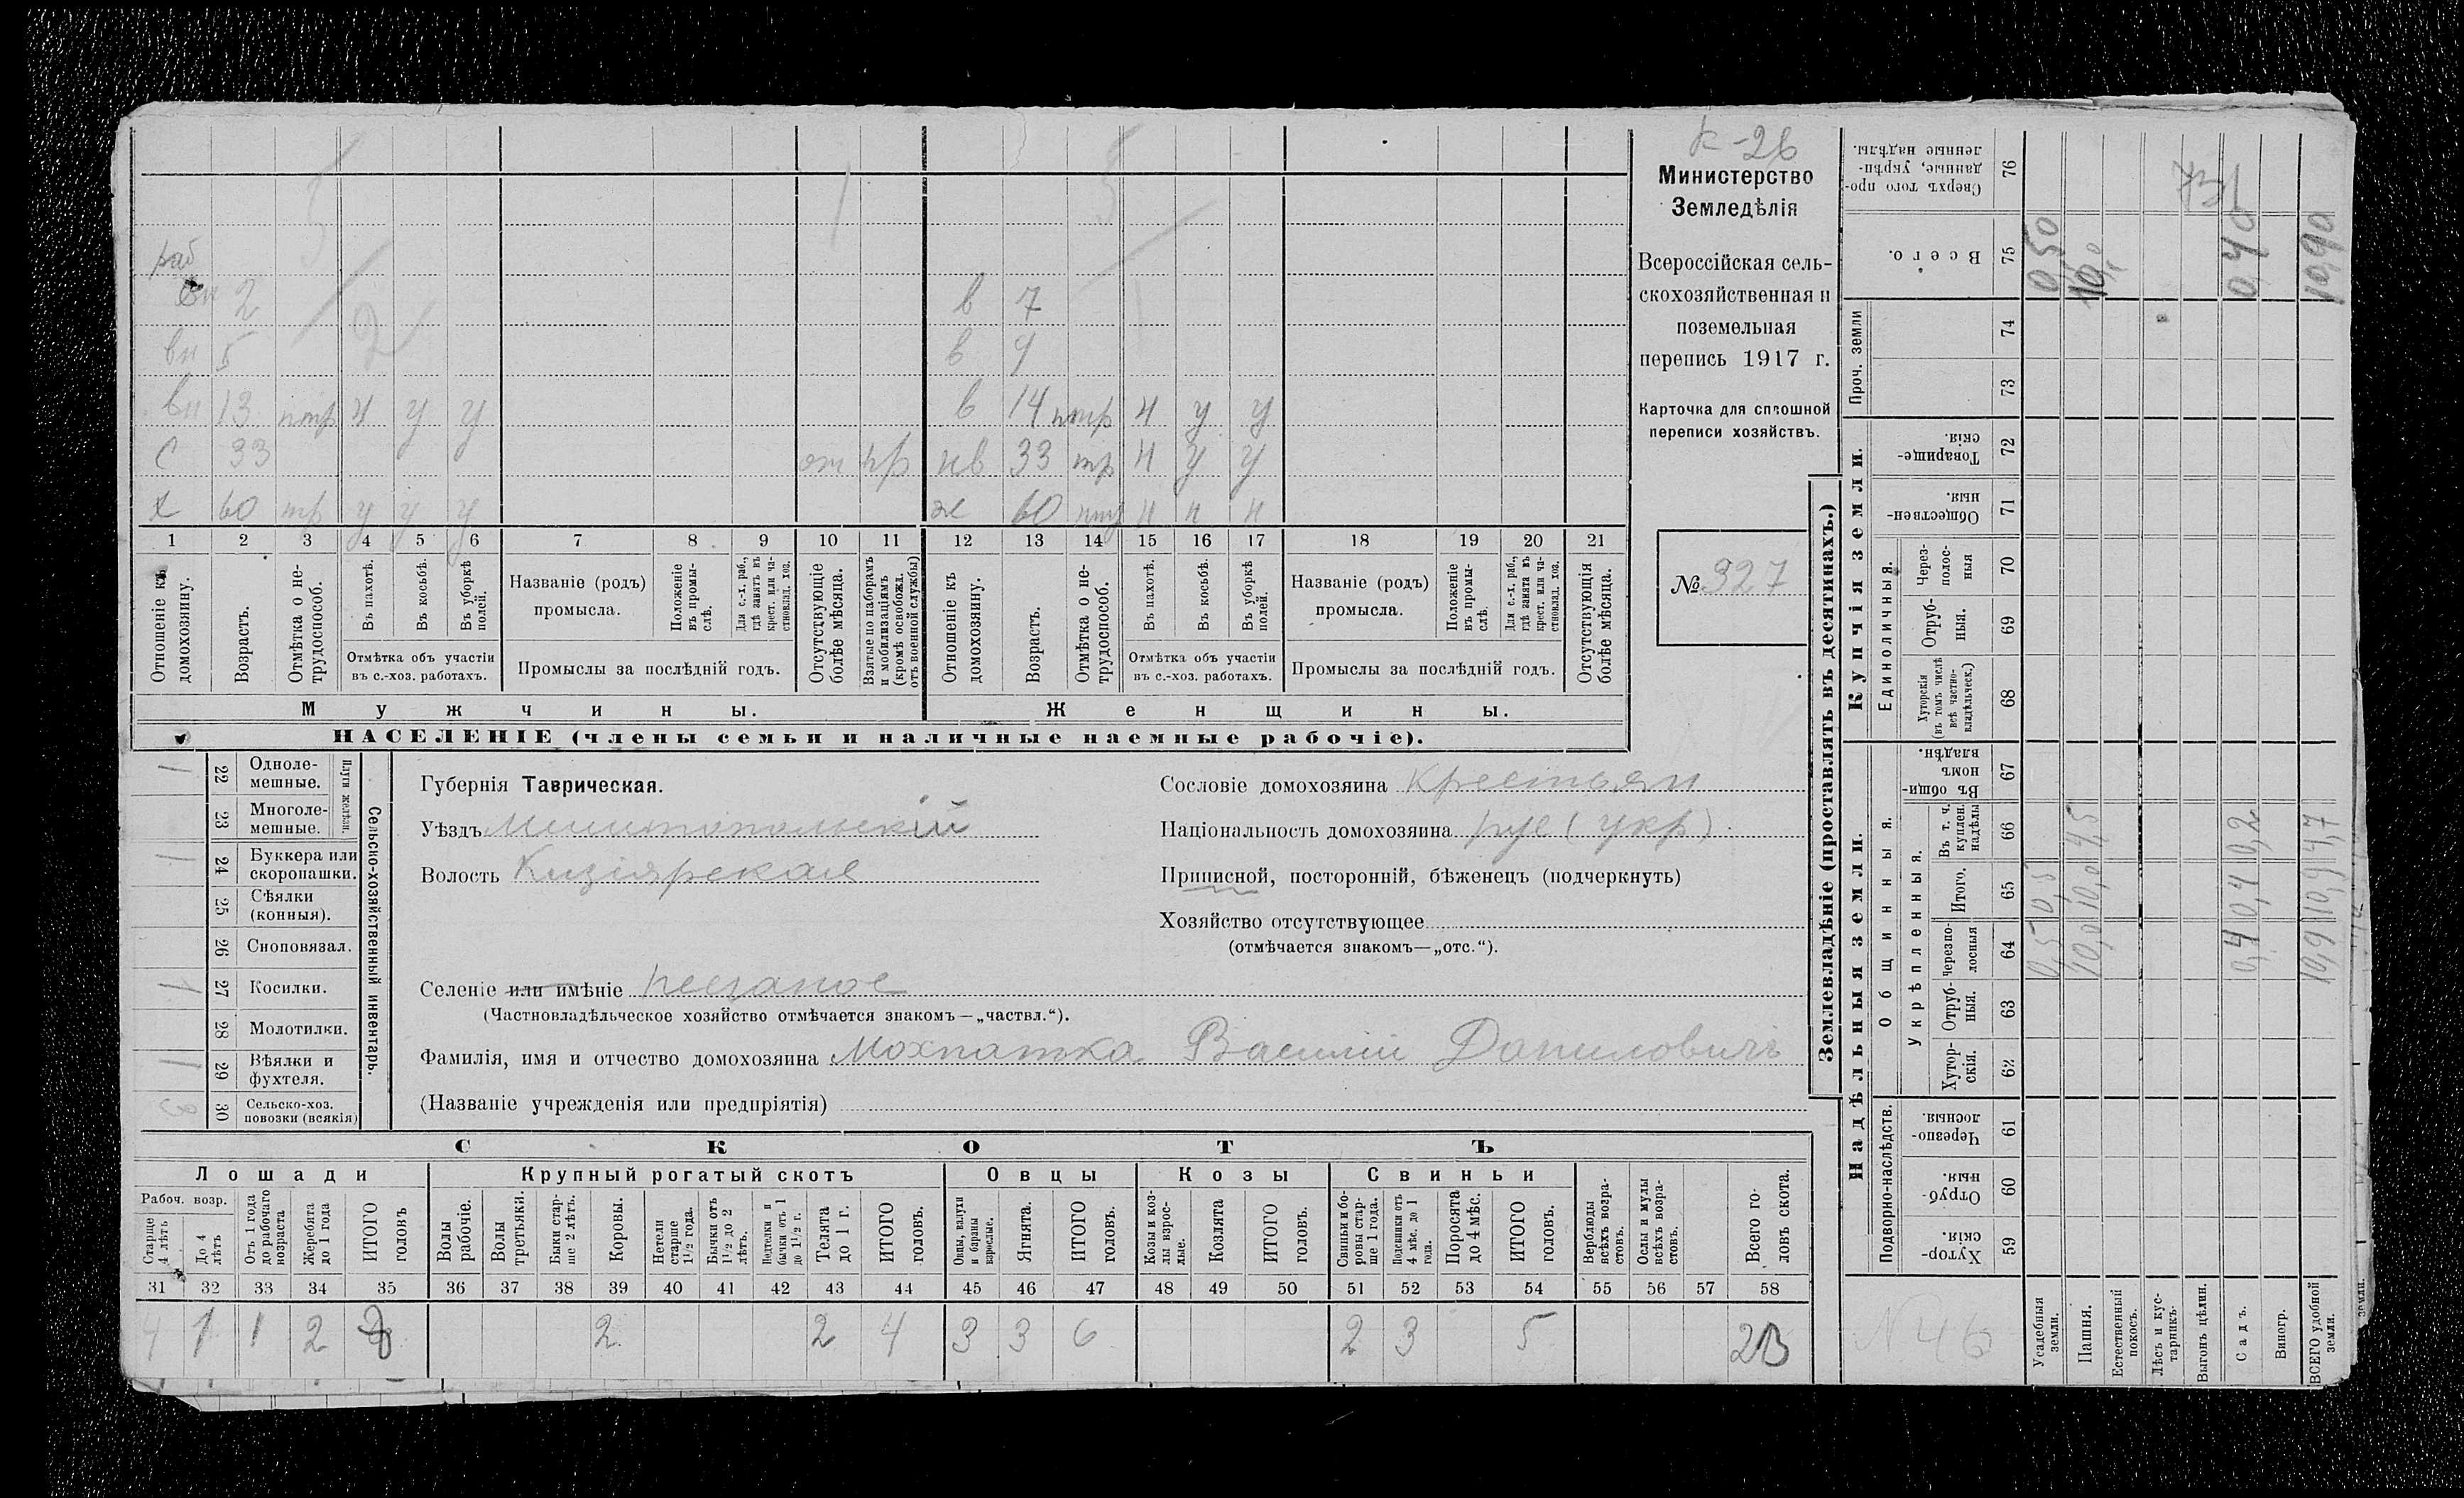 К-26
Министерство
Земледѣлія
Всероссійская сель-
скохозяйственная и
поземельная
перепись 1917 г.
Карточка для сплошной
переписи хозяйствъ.
№ 327
раб
вн 2
в 7
вн 5
в 9
вн 13 птр н у у
в 14 птр н у у
С 33 от пр
нв 33 тр н у у
х 60 тр у у у
ж 60 птр н н н
1 2 3 4 5 6 7 8 9 10 11 12 13 14 15 16 17 18 19 20 21
Отношеніе къ домохозяину.
Возрастъ.
Отмѣтка о не-трудоспособ.
Въ пахотѣ.
Въ косьбѣ.
Въ уборкѣ полей.
Отмѣтка объ участіи
въ с.-хоз. работахъ.
Названіе (родъ)
промысла.
Положеніе въ промы-слѣ.
Для с.-х. раб., гдѣ занятъ въ крест. или ча-стновлад. хоз.
Промыслы за послѣдній годъ.
Отсутствующіе болѣе мѣсяца.
Взятые по наборамъ и мобилизаціямъ (кромѣ освобожд. отъ военной службы)
Отношеніе къ домохозяину.
Возрастъ.
Отмѣтка о не-трудоспособ.
Въ пахотѣ.
Въ косьбѣ.
Въ уборкѣ полей.
Отмѣтка объ участіи
въ с.-хоз. работахъ.
Названіе (родъ)
промысла.
Положеніе въ промы-слѣ.
Для с.-х. раб., гдѣ занята въ крест. или ча-стновлад. хоз.
Промыслы за послѣдній годъ.
Отсутствующія болѣе мѣсяца.
Мужчины.
Женщины.
НАСЕЛЕНІЕ (члены семьи и наличные наемные рабочіе).
Сельско-хозяйственный инвентарь.
Плуги желѣзн.
1 22 Одноле-
мешные.
23 Многоле-
мешные.
1 24 Буккера или
скоропашки.
25 Сѣялки
(конныя).
26 Сноповязал.
1 27 Косилки.
28 Молотилки.
1 29 Вѣялки и
фухтеля.
30 Сельско-хоз.
повозки (всякія)
Губернія Таврическая.
Уѣздъ Мелитопольскій
Волость Кизіярская
Сословіе домохозяина крестьян
Національность домохозяина рус (укр)
Приписной, посторонній, бѣженецъ (подчеркнуть)
Хозяйство отсутствующее
(отмѣчается знакомъ—„отс.“).
Селеніе или имѣніе песчаное
(Частновладѣльческое хозяйство отмѣчается знакомъ—„частвл.“).
Фамилія, имя и отчество домохозяина Мохнатка Василій Даниловичъ
(Названіе учрежденія или предпріятія)
СКОТЪ
Лошади
Крупный рогатый скотъ
Овцы
Козы
Свиньи
Рабоч. возр.
Старше 4 лѣтъ
До 4 лѣтъ
Отъ 1 года до рабочаго возраста
Жеребята до 1 года
ИТОГО головъ
Волы рабочіе.
Волы третьяки.
Быки стар-ше 2 лѣтъ.
Коровы.
Нетели старше 1½ года.
Бычки отъ 1½ до 2 лѣтъ.
Подтелки и бычки отъ 1 до 1½ г.
Телята до 1 г.
ИТОГО головъ.
Овцы, валухи и бараны взрослые.
Ягнята.
ИТОГО головъ.
Козы и коз-лы взрос-лые.
Козлята
ИТОГО головъ.
Свиньи и бо-ровы стар-ше 1 года.
Подсвинки отъ 4 мѣс. до 1 года.
Поросята до 4 мѣс.
ИТОГО головъ.
Верблюды всѣхъ возра-стовъ.
Ослы и мулы всѣхъ возра-стовъ.
Всего го-ловъ скота.
31 32 33 34 35 36 37 38 39 40 41 42 43 44 45 46 47 48 49 50 51 52 53 54 55 56 57 58
4 1 1 2 8 2 2 4 3 3 6 2 3 5 23
Землевладѣніе (проставлять въ десятинахъ.)
Надѣльныя земли.
Купчія земли.
Подворно-наслѣдств.
Общинныя.
Укрѣпленныя.
Единоличныя.
Проч. земли
Сверхъ того про-данные, укрѣп-ленные надѣлы. 76
Всего. 75 0,50 10,0 0,40 10,90
74
73
Товарище-скія. 72
Обществен-ныя. 71
Через-полос-ныя 70
Отруб-ныя. 69
Хуторскія (въ томъ числѣ всѣ частно-владѣльческ.) 68
Въ общи-номъ владѣн. 67
Въ т. ч. куплен. надѣлы 66 4,5 0,2 4,7
Итого. 65 0,5 10,0 0,4 10,9
Черезпо-лосныя 64 0,5 10,0 0,4 10,9
Отруб-ныя. 63
Хутор-скія. 62
Черезпо-лосныя 61
Отруб-ныя. 60
Хутор-скія. 59
Усадебныя земли.
Пашня.
Естественный покосъ.
Лѣсъ и кус-тарникъ.
Выгонъ цѣлин.
Садъ.
Виногр.
ВСЕГО удобной земли.
N 46